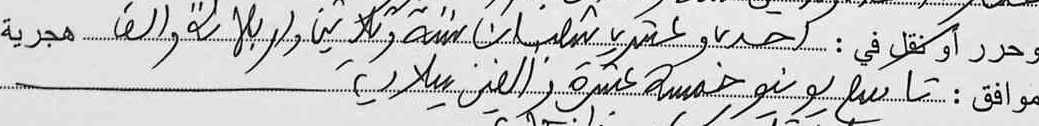 وحرر أو نقل في : احد و عشرين شعبان ستة وثلاثين واربعمائة والف هجرية
موافق : تاسع يونيو خمسة عشرة و الفين ميلادي